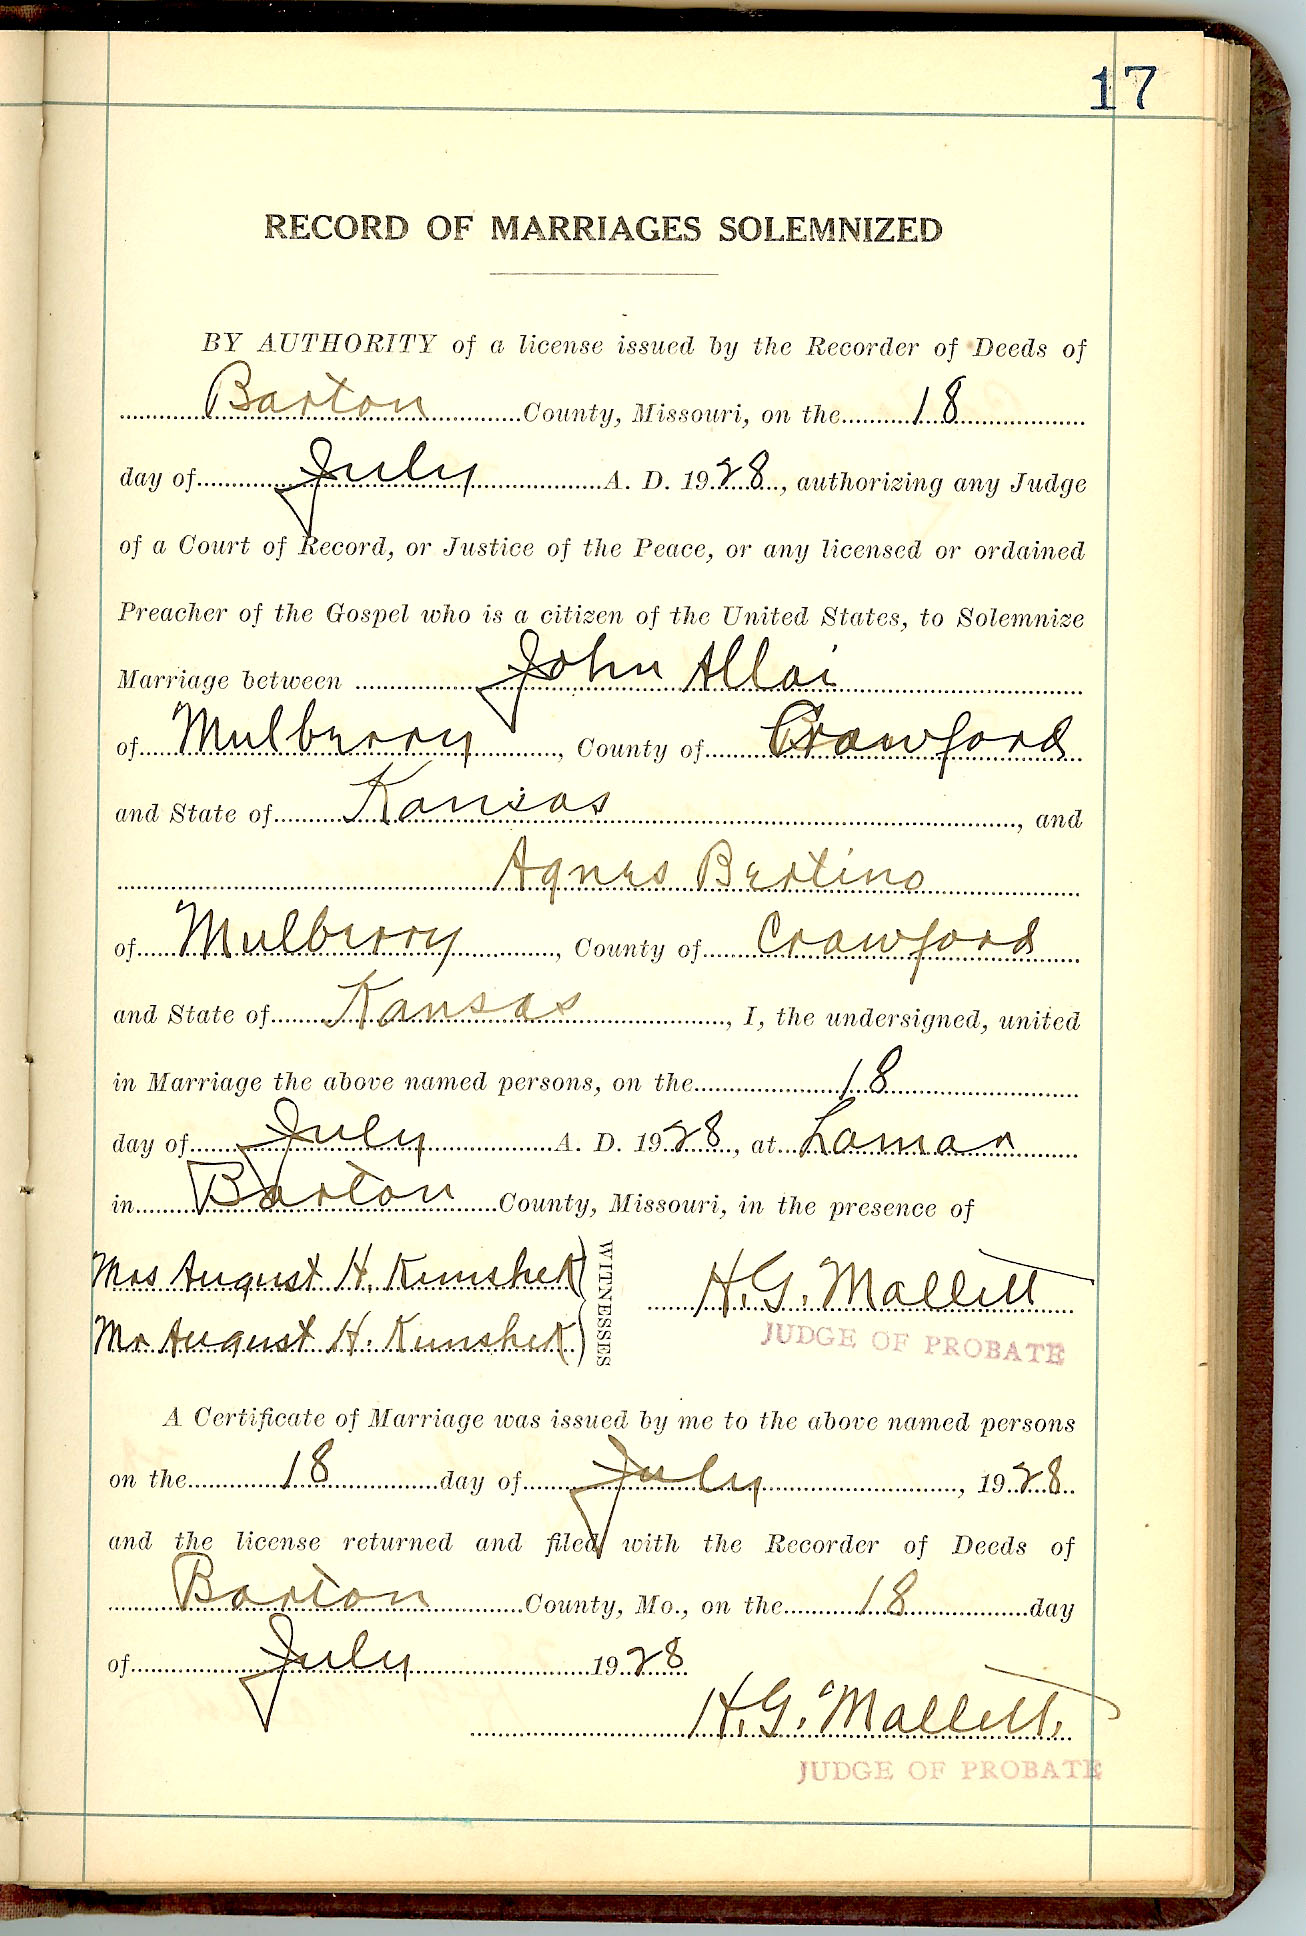 17
RECORD OF MARRIAGES SOLEMNIZED
BY AUTHORITY of a license issued by the Recorder of Deeds of
Barton County, Missouri, on the 18
day of July A. D. 1928, authorizing any Judge
of a Court of Record, or Justice of the Peace, or any licensed or ordained
Preacher of the Gospel who is a citizen of the United States, to Solemnize
Marriage between John Allai
of Mulberry, County of Crawford
and State of Kansas, and
Agnes Bertino
of Mulberry, County of Crawford
and State of Kansas, I, the undersigned, united
in Marriage the above named persons, on the 18
day of July A. D. 1928, at Lamar
in Barton County, Missouri, in the presence of
Mrs August H. Kunshek
Mr August H. Kunshek
WITNESSES
H. G. Mallett
JUDGE OF PROBATE
A Certificate of Marriage was issued by me to the above named persons
on the 18 day of July, 1928
and the license returned and filed with the Recorder of Deeds of
Barton County, Mo., on the 18 day
of July 1928
H. G. Mallett.
JUDGE OF PROBATE